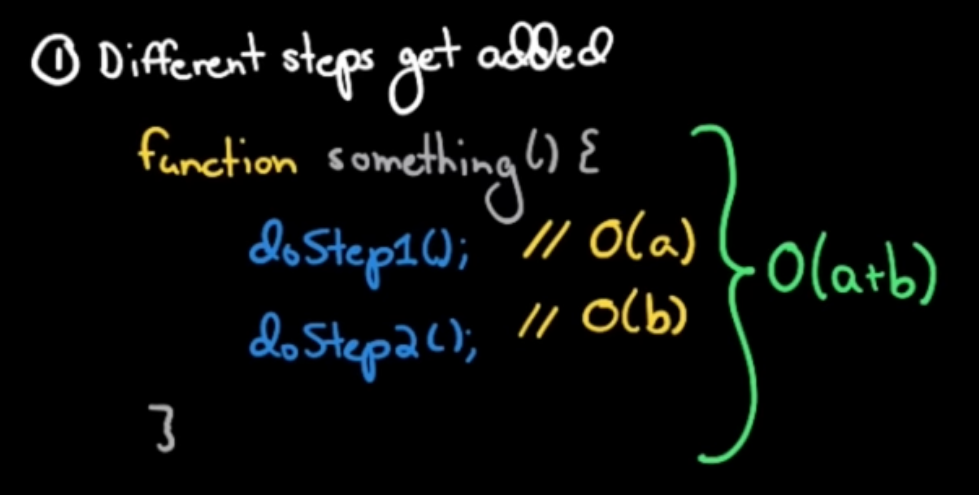 ① Different steps get added
function something() {
doStep1(); // O(a)
doStep2(); // O(b)
}
O(a+b)